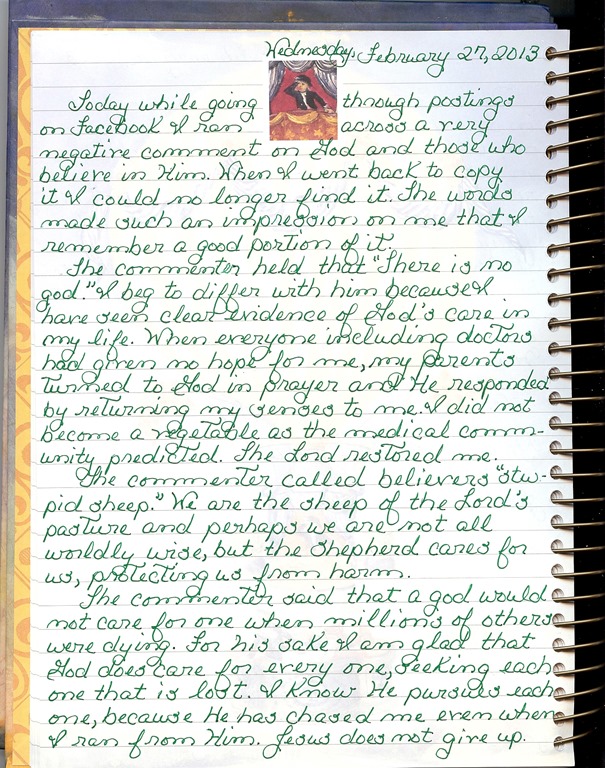 Wednesday, February 27, 2013
Today while going through postings
on Facebook I ran across a very
negative comment on God and those who
believe in Him. When I went back to copy
it I could no longer find it. The words
made such an impression on me that I
remember a good portion of it.
The commenter held that "There is no
god." I beg to differ with him because I
have seen clear evidence of God's care in
my life. When everyone including doctors
had given no hope for me, my parents
turned to God in prayer and He responded
by returning my senses to me. I did not
become a vegetable as the medical comm-
unity predicted. The Lord restored me.
The commenter called believers "stu-
pid sheep." We are the sheep of the Lord's
pasture and perhaps we are not all
worldly wise, but the shepherd cares for
us, protecting us from harm.
The commenter said that a god would
not care for one when millions of others
were dying. For his sake I am glad that
God does care for every one, seeking each
one that is lost. I know He pursues each
one, because He has chased me even when
I ran from Him. Jesus does not give up.